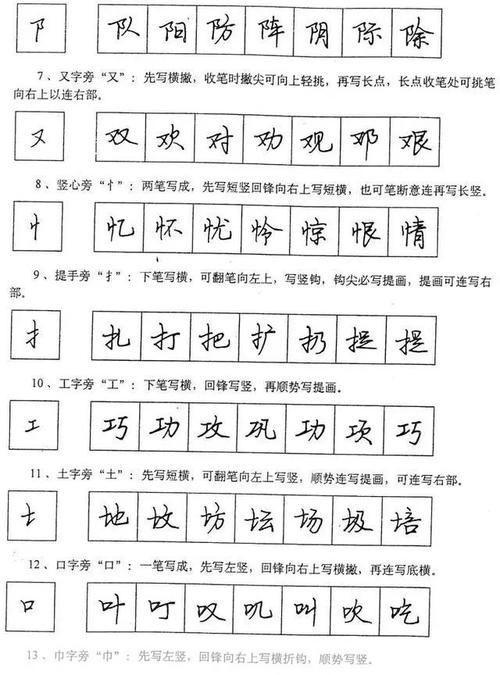 阝 队 阳 防 阵 阴 际 除
7、又字旁“又”：先写横撇，收笔时撇尖可向上轻挑，再写长点，长点收笔处可挑笔
向右上以连右部。
又 双 欢 对 劝 观 邓 艰
8、竖心旁“忄”：两笔写成，先写短竖回锋向右上写短横，也可笔断意连再写长竖。
忄 忆 怀 忧 怜 惊 恨 情
9、提手旁“扌”：下笔写横，可翻笔向左上，写竖钩，钩尖必写提画，提画可连写右
部。
扌 扎 打 把 扩 扔 捉 提
10、工字旁“工”：下笔写横，回锋写竖，再顺势写提画。
工 巧 功 攻 巩 功 项 巧
11、土字旁“土”：先写短横，可翻笔向左上写竖，顺势连写提画，可连写右部。
土 地 坟 坊 坛 场 圾 培
12、口字旁“口”：一笔写成，先写左竖，回锋向右上写横撇，再连写底横。
口 叶 叮 叹 叽 叫 吹 吃
13、巾字旁“巾”：先写左竖，回锋向右上写横折钩，顺势写竖。